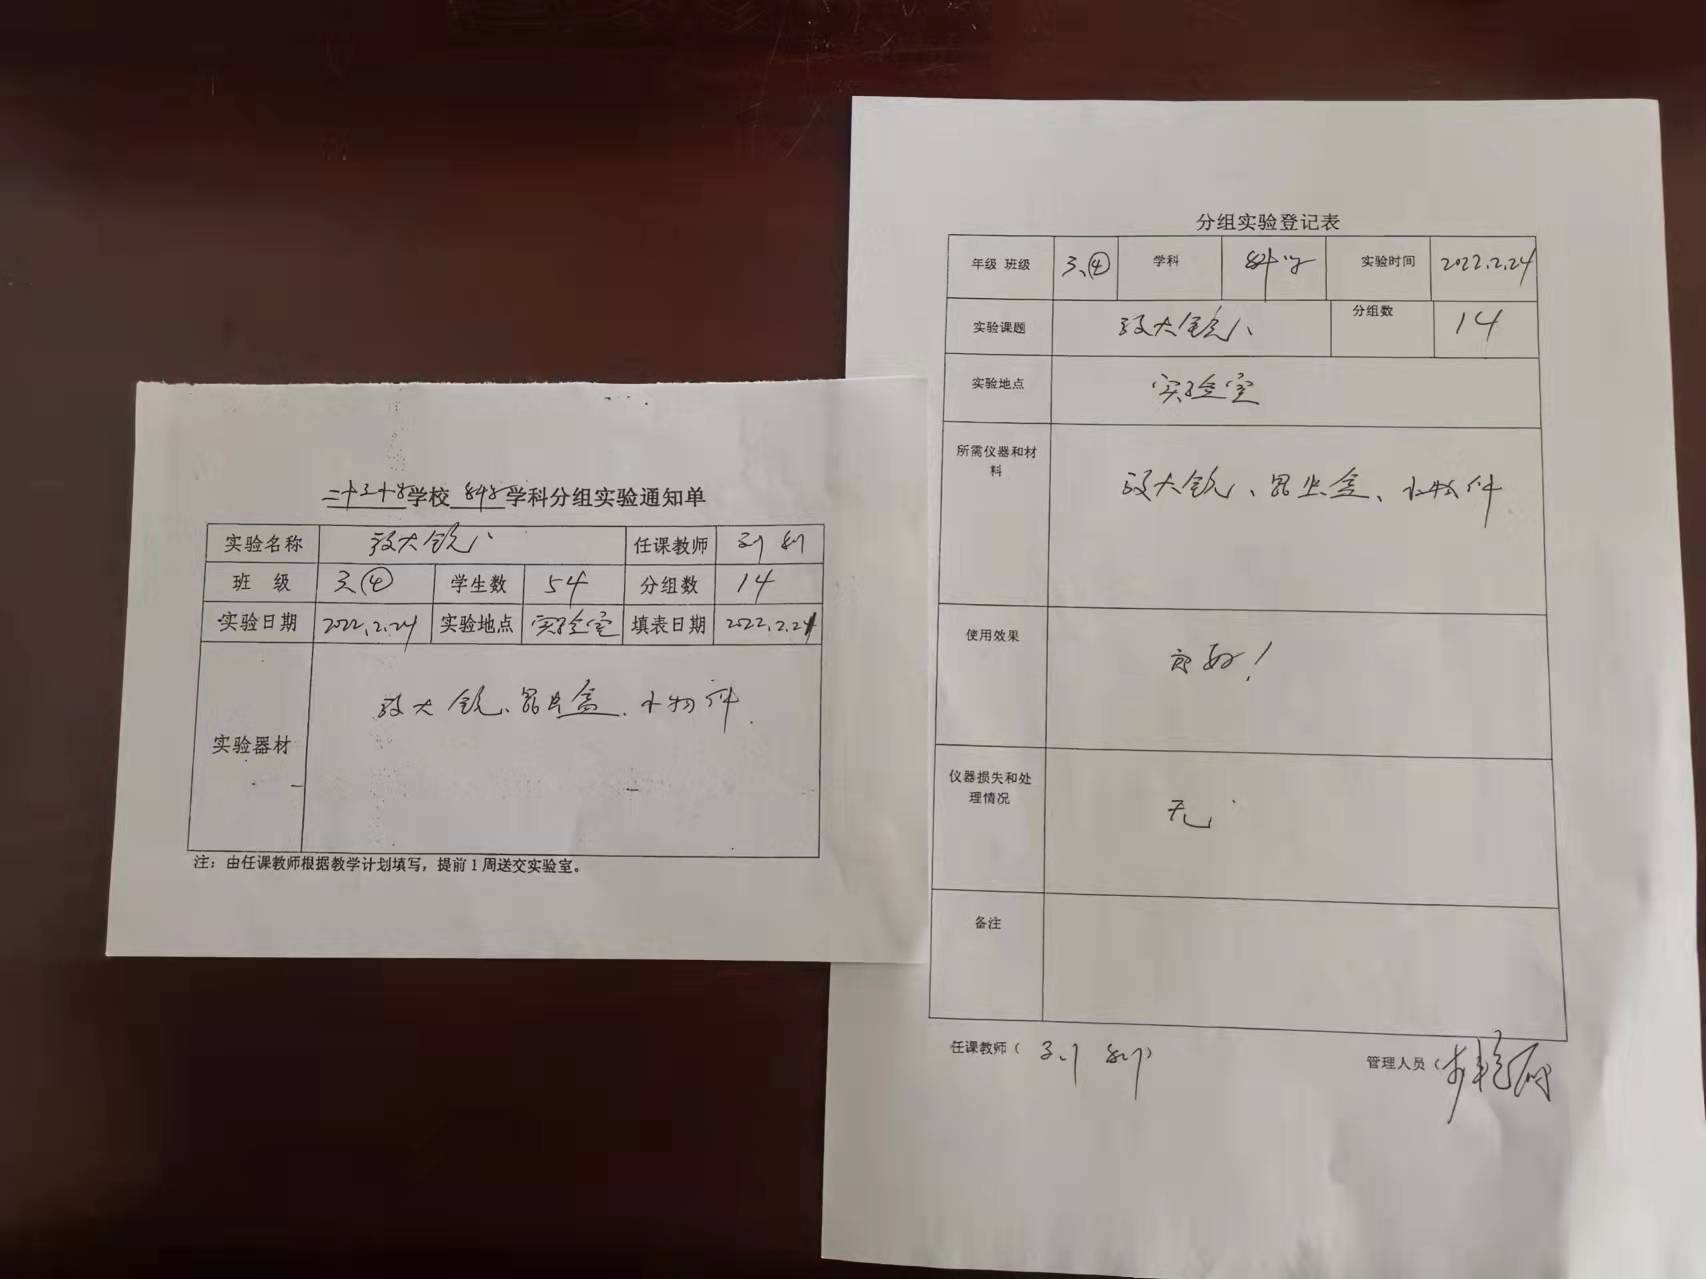 二十三小学校 科学 学科分组实验通知单
实验名称 放大镜 任课教师
班 级 三、④ 学生数 54 分组数 14
实验日期 2022.2.24 实验地点 实验室 填表日期 2022.2.21
实验器材 放大镜、昆虫盒、小物件
注：由任课教师根据教学计划填写，提前1周送交实验室。
分组实验登记表
年级 班级 三、④ 学科 科学 实验时间 2022.2.24
实验课题 放大镜 分组数 14
实验地点 实验室
所需仪器和材料 放大镜、昆虫盒、小物件
使用效果 良好！
仪器损失和处理情况 无
备注
任课教师（
管理人员（